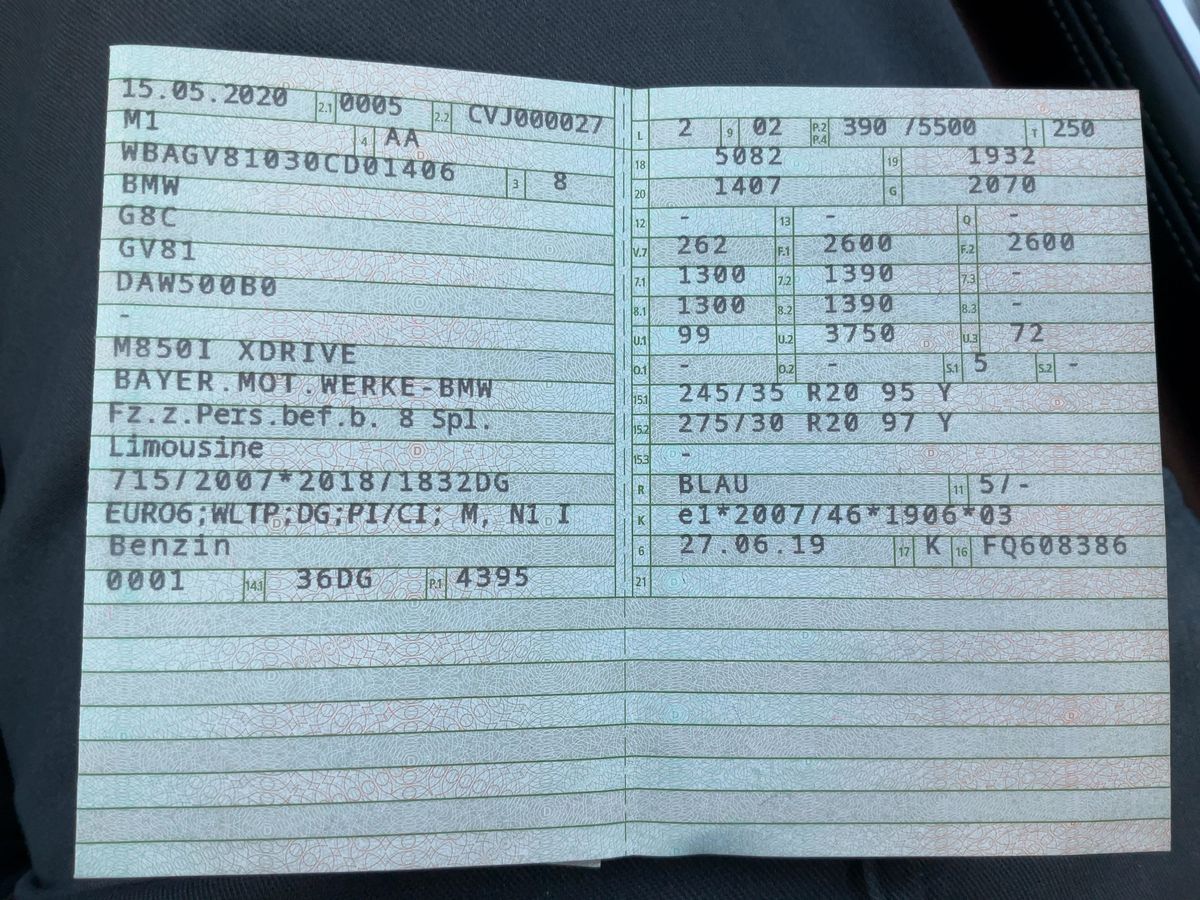 15.05.2020 2.1 0005 2.2 CVJ000027
M1 4 AA
WBAGV81030CD01406 3 8
BMW
G8C
GV81
DAW500B0
-
M850I XDRIVE
BAYER.MOT.WERKE-BMW
Fz.z.Pers.bef.b. 8 Spl.
Limousine
715/2007*2018/1832DG
EURO6;WLTP;DG;PI/CI; M, N1 I
Benzin
0001 14.1 36DG P.1 4395
L 2 9 02 P.2 P.4 390 /5500 T 250
18 5082 19 1932
20 1407 G 2070
12 - 13 - Q -
V.7 262 F.1 2600 F.2 2600
7.1 1300 7.2 1390 7.3 -
8.1 1300 8.2 1390 8.3 -
U.1 99 U.2 3750 U.3 72
O.1 - O.2 - S.1 5 S.2 -
15.1 245/35 R20 95 Y
15.2 275/30 R20 97 Y
15.3 -
R BLAU 11 5/-
K e1*2007/46*1906*03
6 27.06.19 17 K 16 FQ608386
21